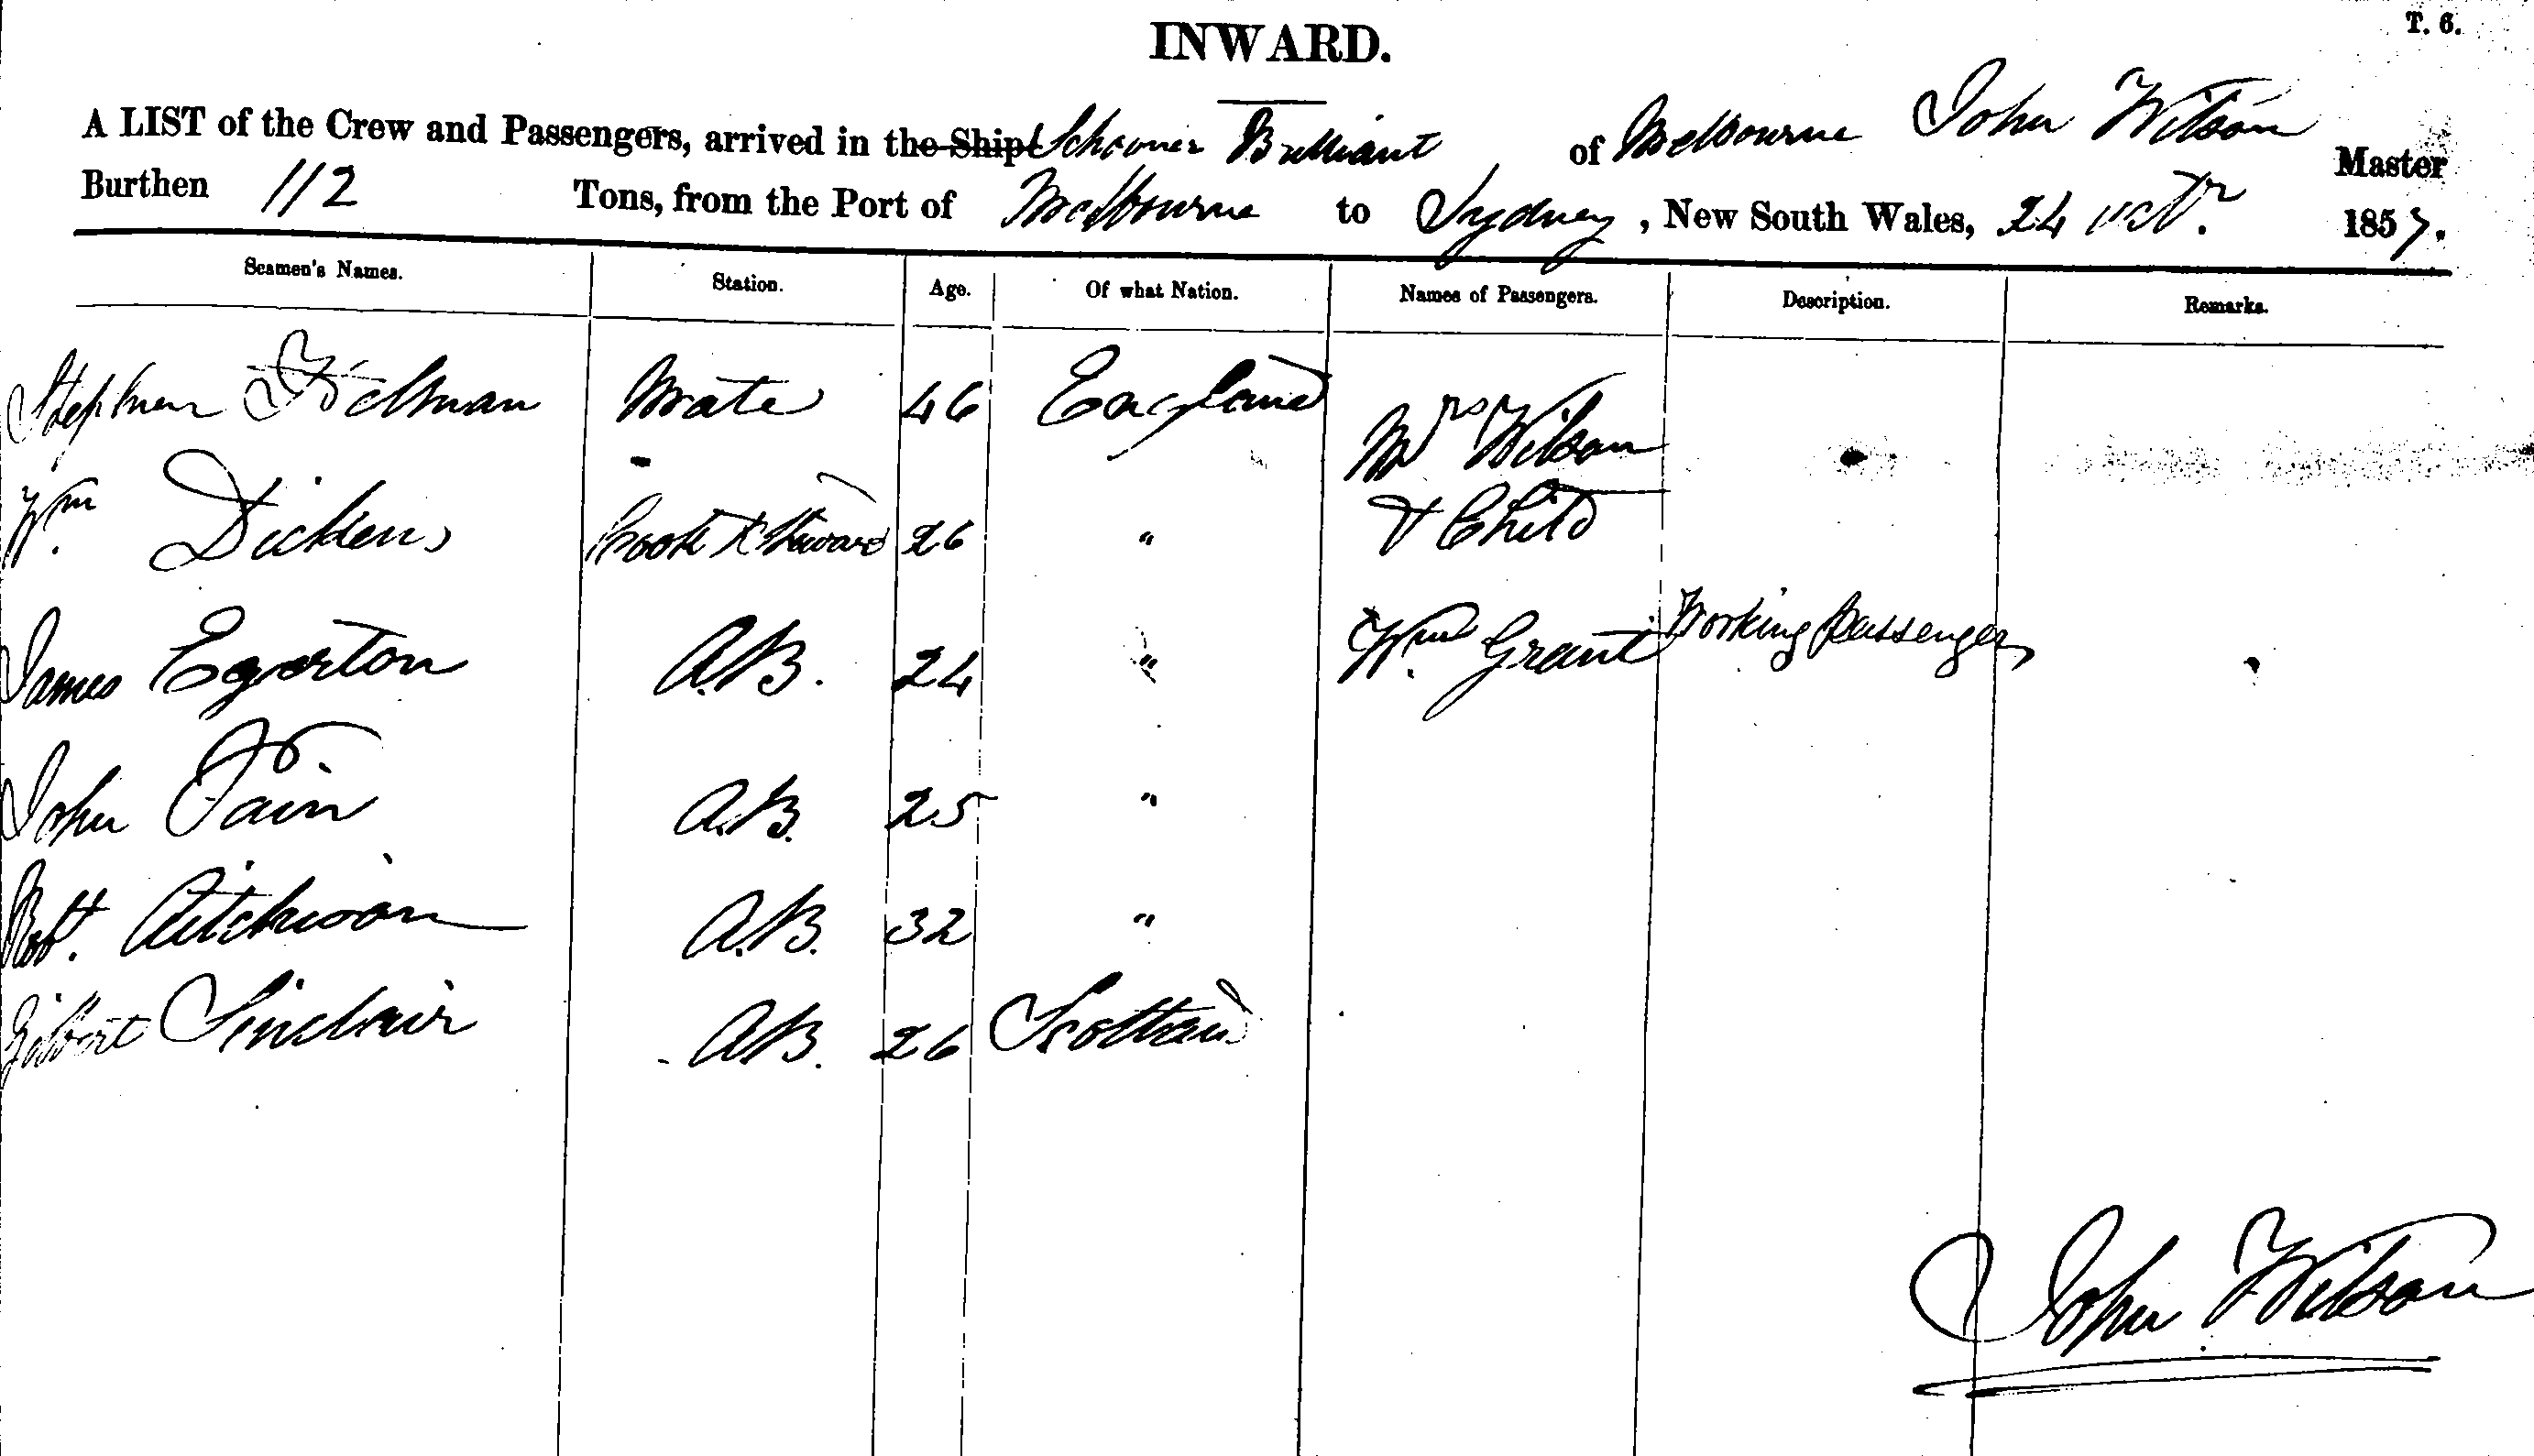 T. 6.
INWARD.
A LIST of the Crew and Passengers, arrived in the Ship Schooner Brilliant of Melbourne John Wilson Master
Burthen 112 Tons, from the Port of Melbourne to Sydney, New South Wales, 24 Octr. 1857.
Seamen's Names. Station. Age. Of what Nation. Names of Passengers. Description. Remarks.
Stephen Mate 46 England Mrs Wilson
Wm. Dickens Cook & Steward 26 " & Child
James Egerton A.B. 24 " Wm. Grant Working Passenger
John A.B. 25 "
Robt. Aitchison A.B. 32 "
Gilbert Sinclair A.B. 26 Scotland
John Wilson